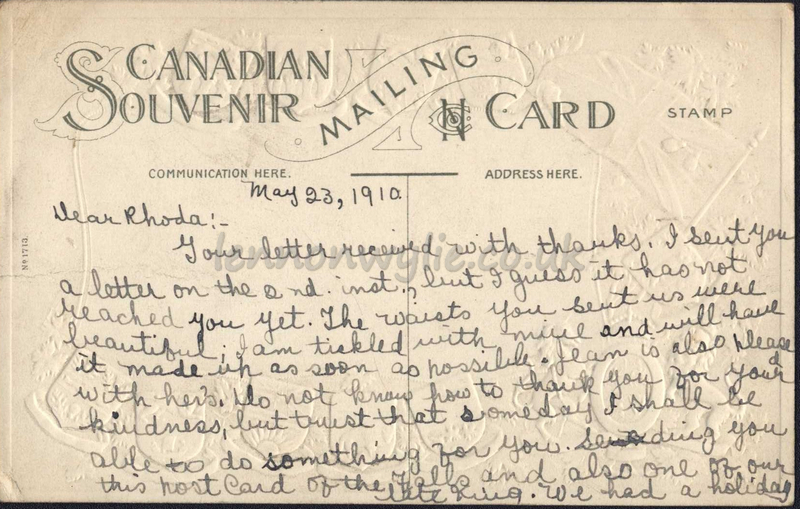 CANADIAN
SOUVENIR
MAILING
CARD
STAMP
COMMUNICATION HERE.
ADDRESS HERE.
No 1713.
May 23, 1910.
Dear Rhoda:-
Your letter received with thanks. I sent you
a letter on the 2nd. inst., but I guess it has not
reached you yet. The waists you sent us were
beautiful; I am tickled with mine and will have
it made up as soon as possible. Jean is also pleased
with hers. Do not know how to thank you for your
kindness, but trust that someday I shall be
able to do something for you. Sending you
this post card of the Falls and also one of our
late King. We had a holiday
lennonwylie.co.uk